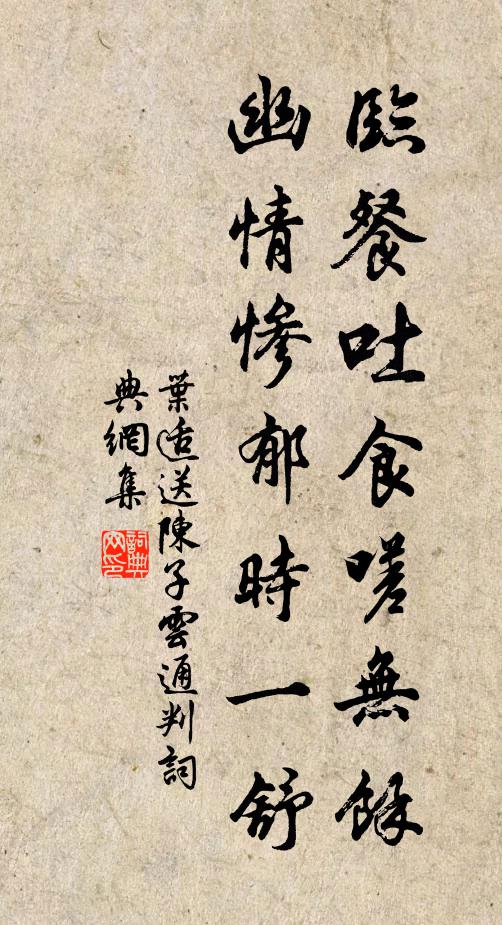 臨餐吐食嗟無餘
幽情慘郁時一舒
葉適送陳子雲通判詞
典網集
詞典
网印